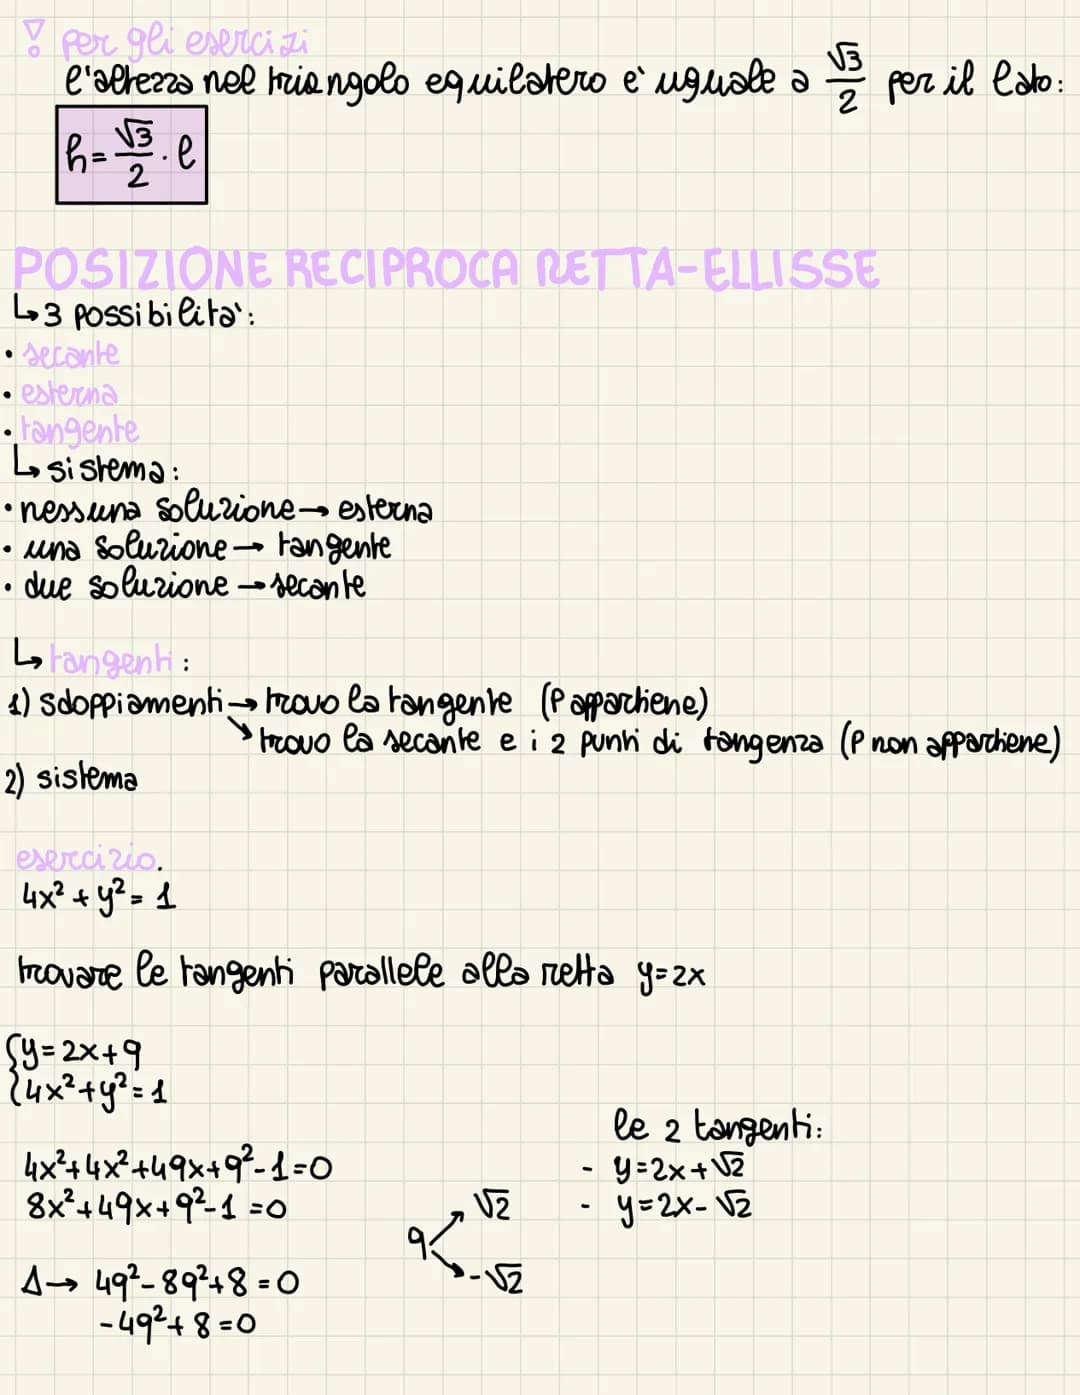 per gli esercizi
l'altezza nel triangolo equilatero e' uguale a √3/2 per il lato:
h = √3/2 · l
POSIZIONE RECIPROCA RETTA-ELLISSE
↳ 3 possibilita':
• secante
• esterna
• tangente
↳ sistema:
• nessuna soluzione → esterna
• una soluzione → tangente
• due soluzione → secante
↳ tangenti:
1) sdoppiamenti → trovo la tangente (P appartiene)
↘ trovo la secante e i 2 punti di tangenza (P non appartiene)
2) sistema
esercizio.
4x² + y² = 1
trovare le tangenti parallele alla retta y=2x
{y=2x+q
{4x²+y²=1
4x²+4x²+4qx+q²-1=0
8x²+4qx+q²-1=0
Δ → 4q²-8q²+8=0
-4q²+8=0
q ↗ √2
↘ -√2
le 2 tangenti:
- y=2x+√2
- y=2x-√2